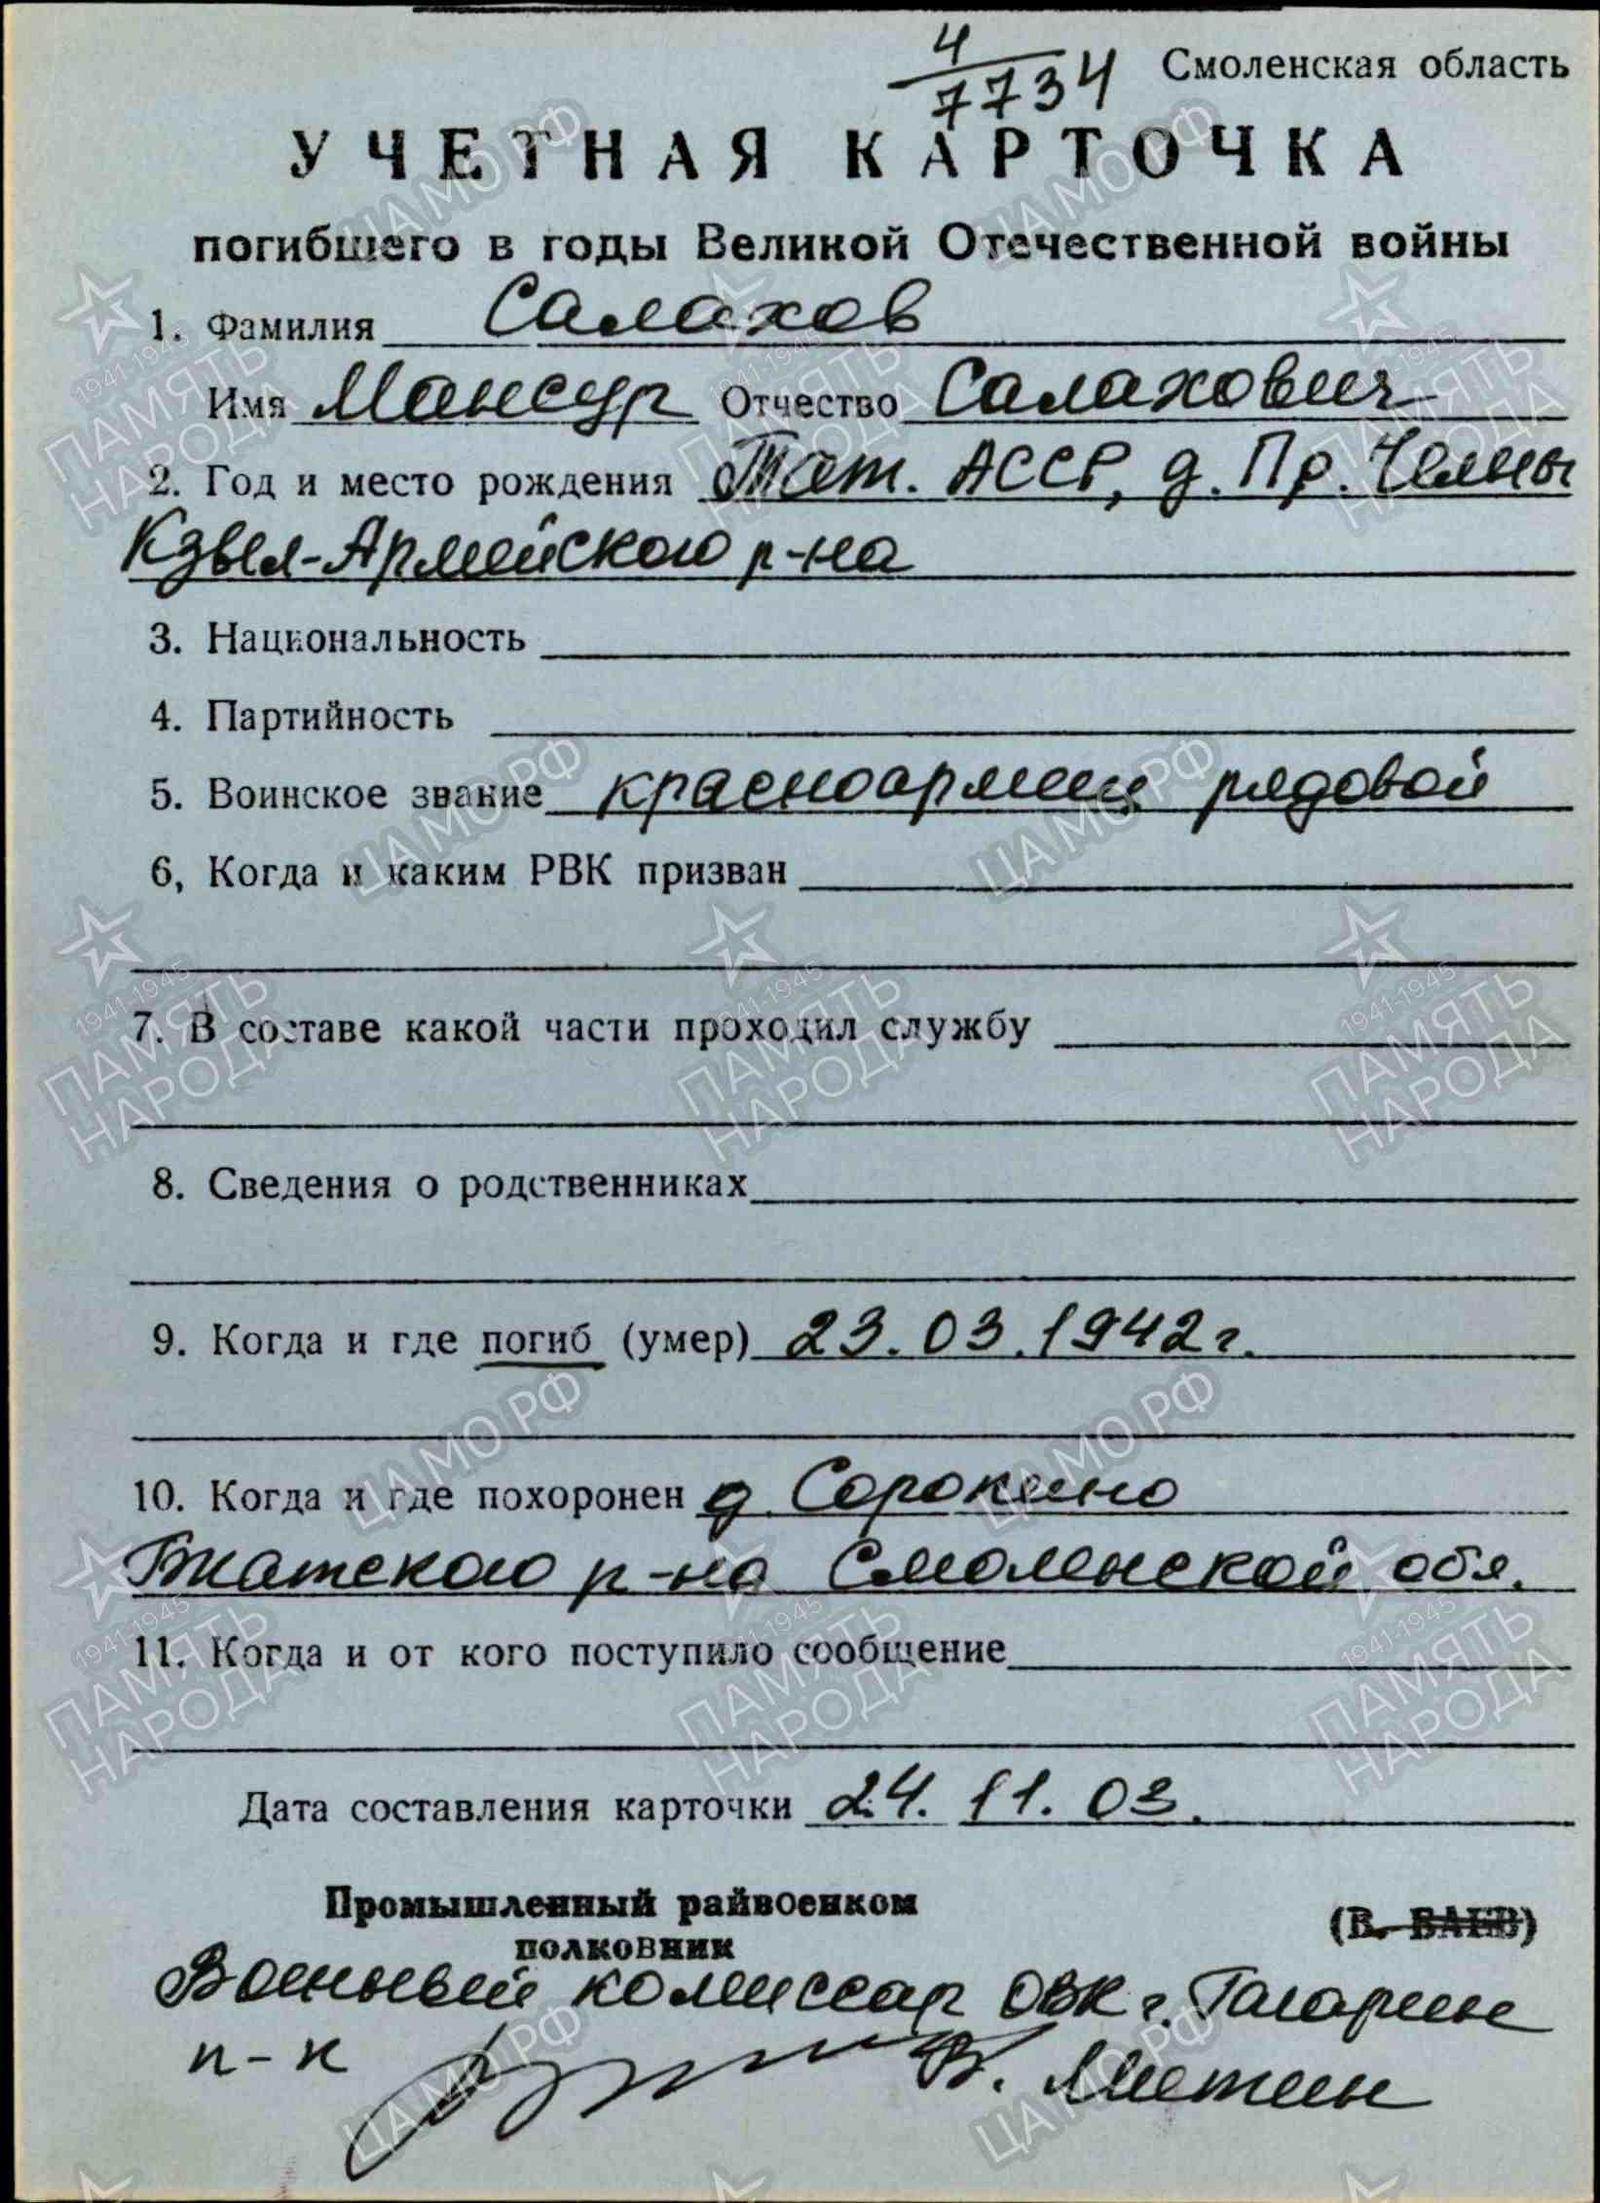 4
7734 Смоленская область
УЧЕТНАЯ КАРТОЧКА
погибшего в годы Великой Отечественной войны
1. Фамилия Салахов
Имя Мансур Отчество Салахович
2. Год и место рождения Тат. АССР, д. Пр. Челны
Кзыл-Армейского р-на
3. Национальность
4. Партийность
5. Воинское звание красноармеец рядовой
6, Когда и каким РВК призван
7. В составе какой части проходил службу
8. Сведения о родственниках
9. Когда и где погиб (умер) 23.03.1942г.
10. Когда и где похоронен д. Сорокино
Гжатского р-на Смоленской обл.
11. Когда и от кого поступило сообщение
Дата составления карточки 24. 11. 03.
Промышленный райвоенком
полковник (В. БАЕВ)
Военный комиссар ОВК г. Гагарин
п-к В. Митин
ЦАМО.РФ
1941-1945
ПАМЯТЬ
НАРОДА